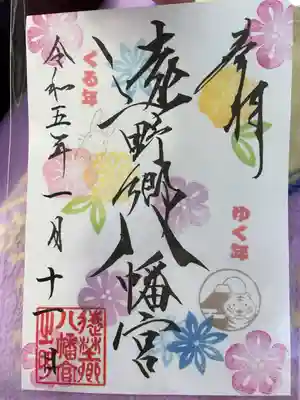 奉拝
ゆく年
遠野郷八幡宮
くる年
令和五年一月十一日
遠野郷
八幡宮
之印